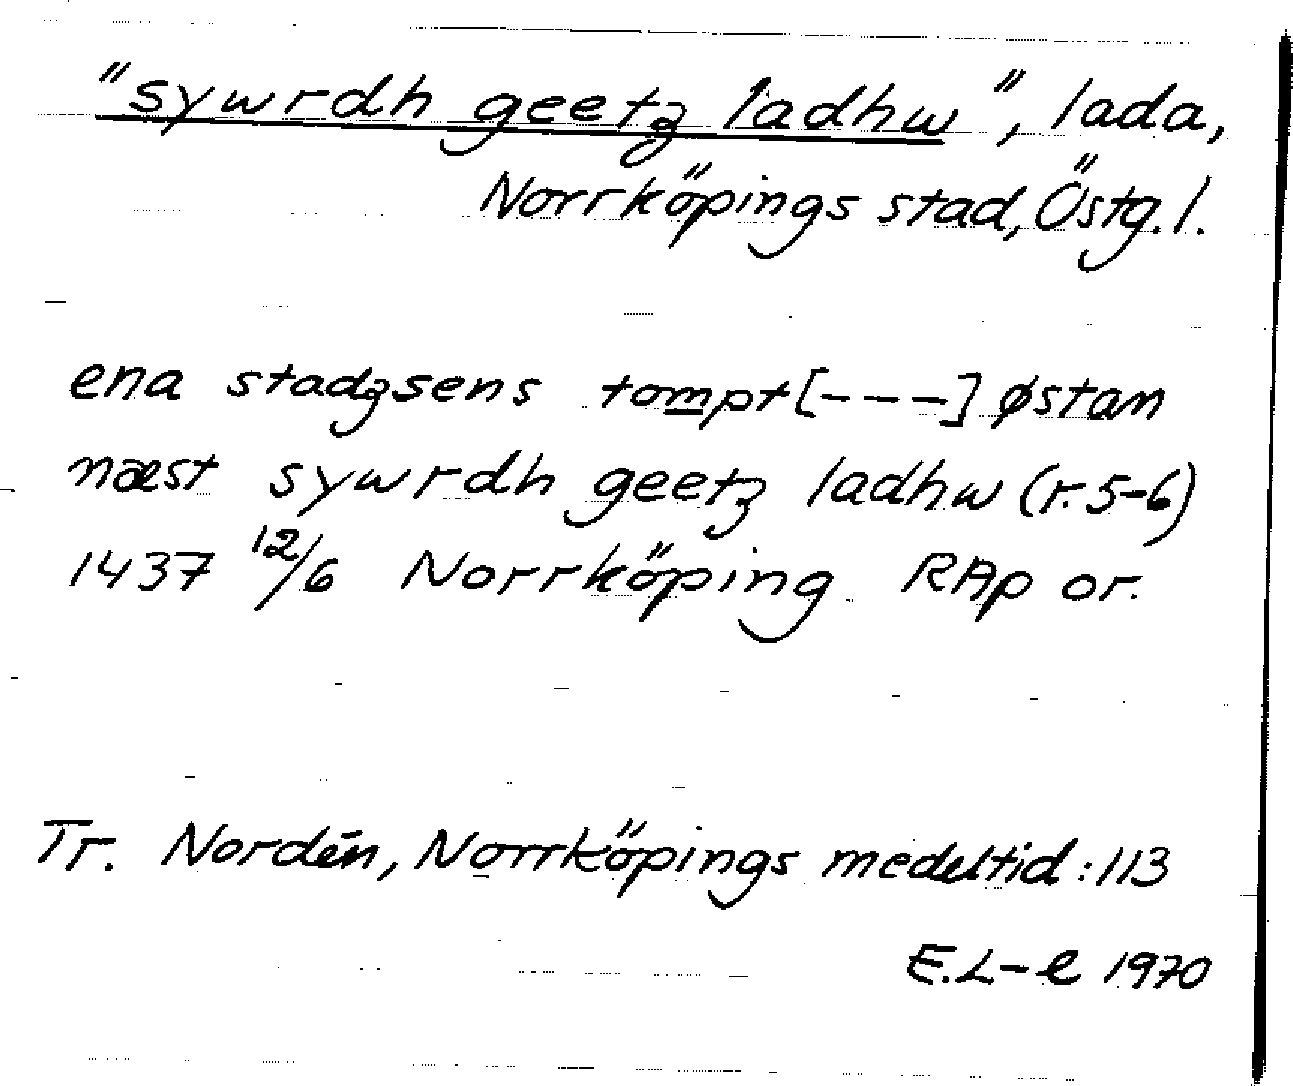 "sywrdh geetz ladhw", lada,
Norrköpings stad, Östg.l.
ena stadzsens tompt [---] østan
næst sywrdh geetz ladhw (r. 5-6)
1437 12/6 Norrköping RAp or.
Tr. Nordén, Norrköpings medeltid: 113
E.L-e 1970